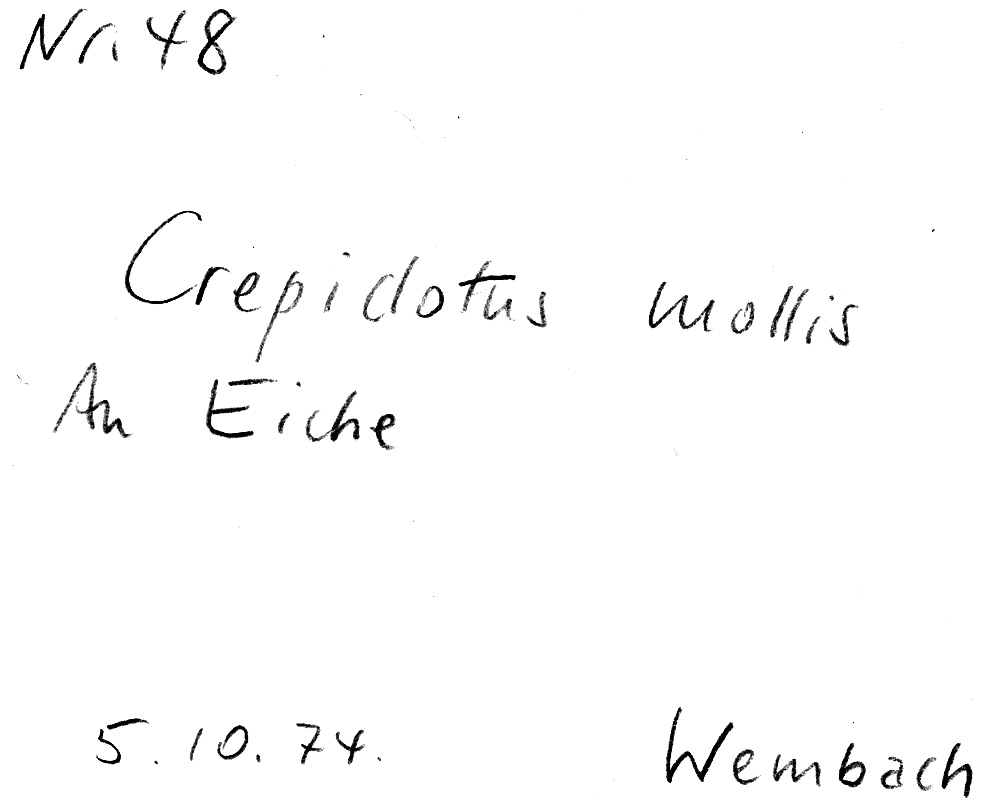 Nr. 48
Crepidotus mollis
An Eiche
5.10.74. Wembach